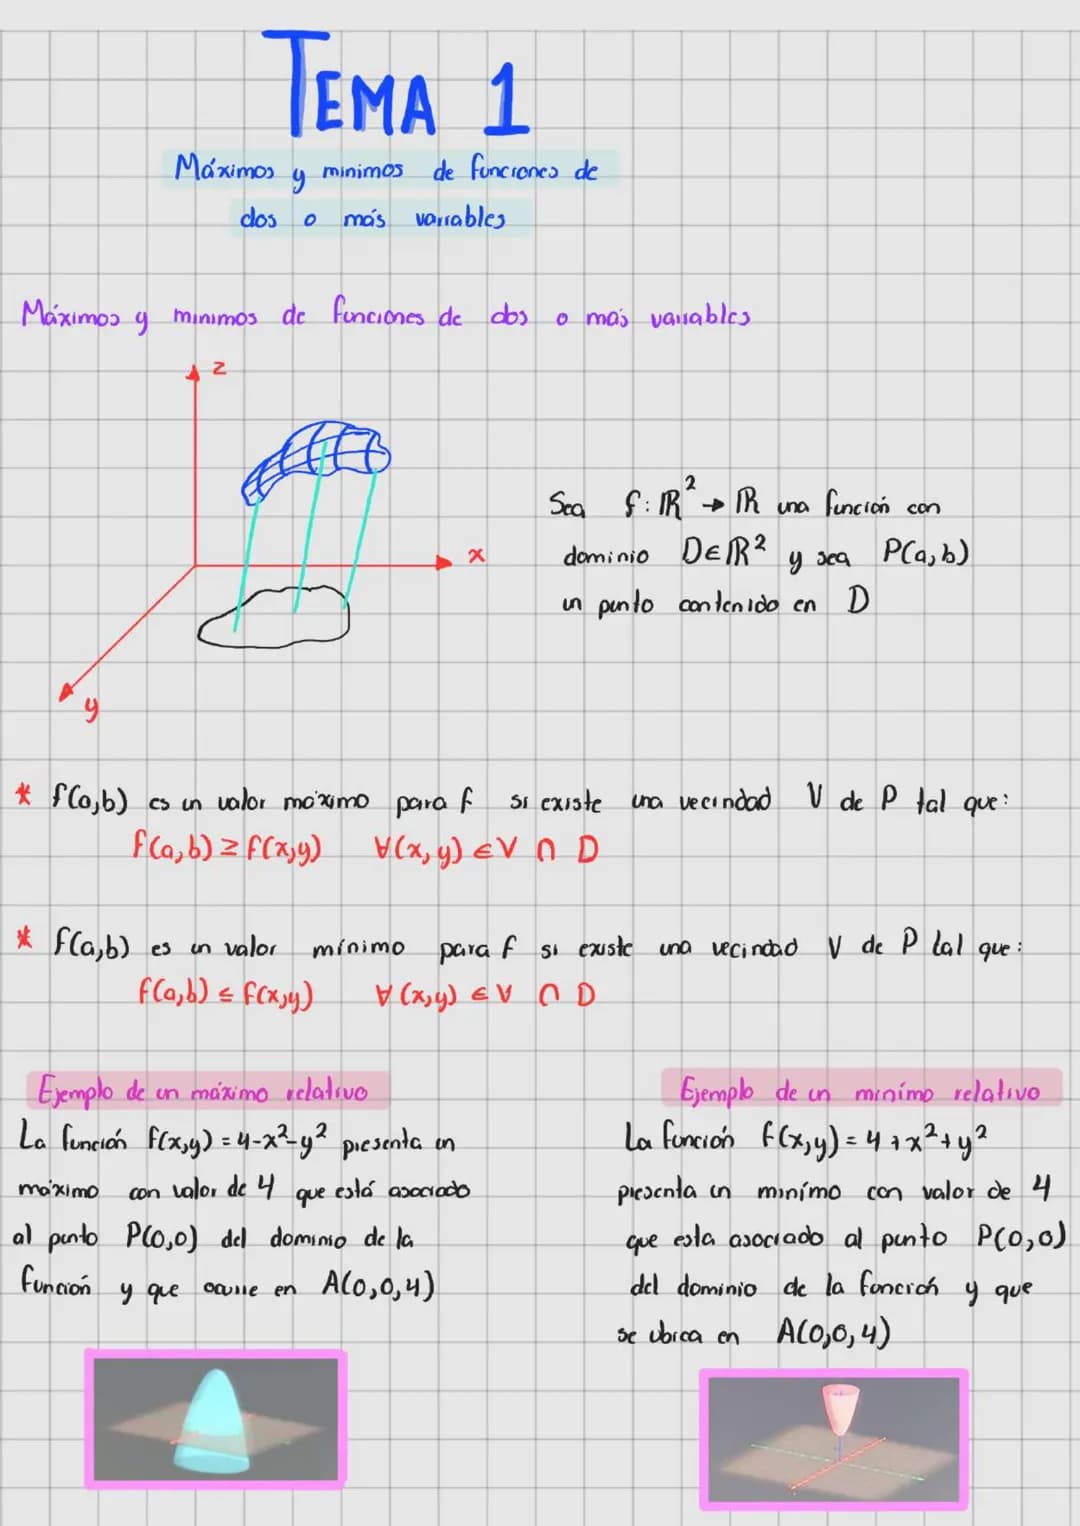 TEMA 1
Máximos y minimos de funciones de
dos o más variables
Máximos y minimos de funciones de dos o más variables
z
x
y
Sea f: ℝ² → ℝ una función con
dominio D∈ℝ² y sea P(a,b)
un punto contenido en D
* f(a,b) es un valor máximo para f si existe una vecindad V de P tal que:
f(a,b) ≥ f(x,y) ∀(x,y) ∈ V ∩ D
* f(a,b) es un valor mínimo para f si existe una vecindad V de P tal que:
f(a,b) ≤ f(x,y) ∀(x,y) ∈ V ∩ D
Ejemplo de un máximo relativo
La función f(x,y) = 4-x²-y² presenta un
máximo con valor de 4 que está asociado
al punto P(0,0) del dominio de la
función y que ocurre en A(0,0,4)
Ejemplo de un mínimo relativo
La función f(x,y) = 4+x²+y²
presenta un mínimo con valor de 4
que esta asociado al punto P(0,0)
del dominio de la función y que
se ubica en A(0,0,4)